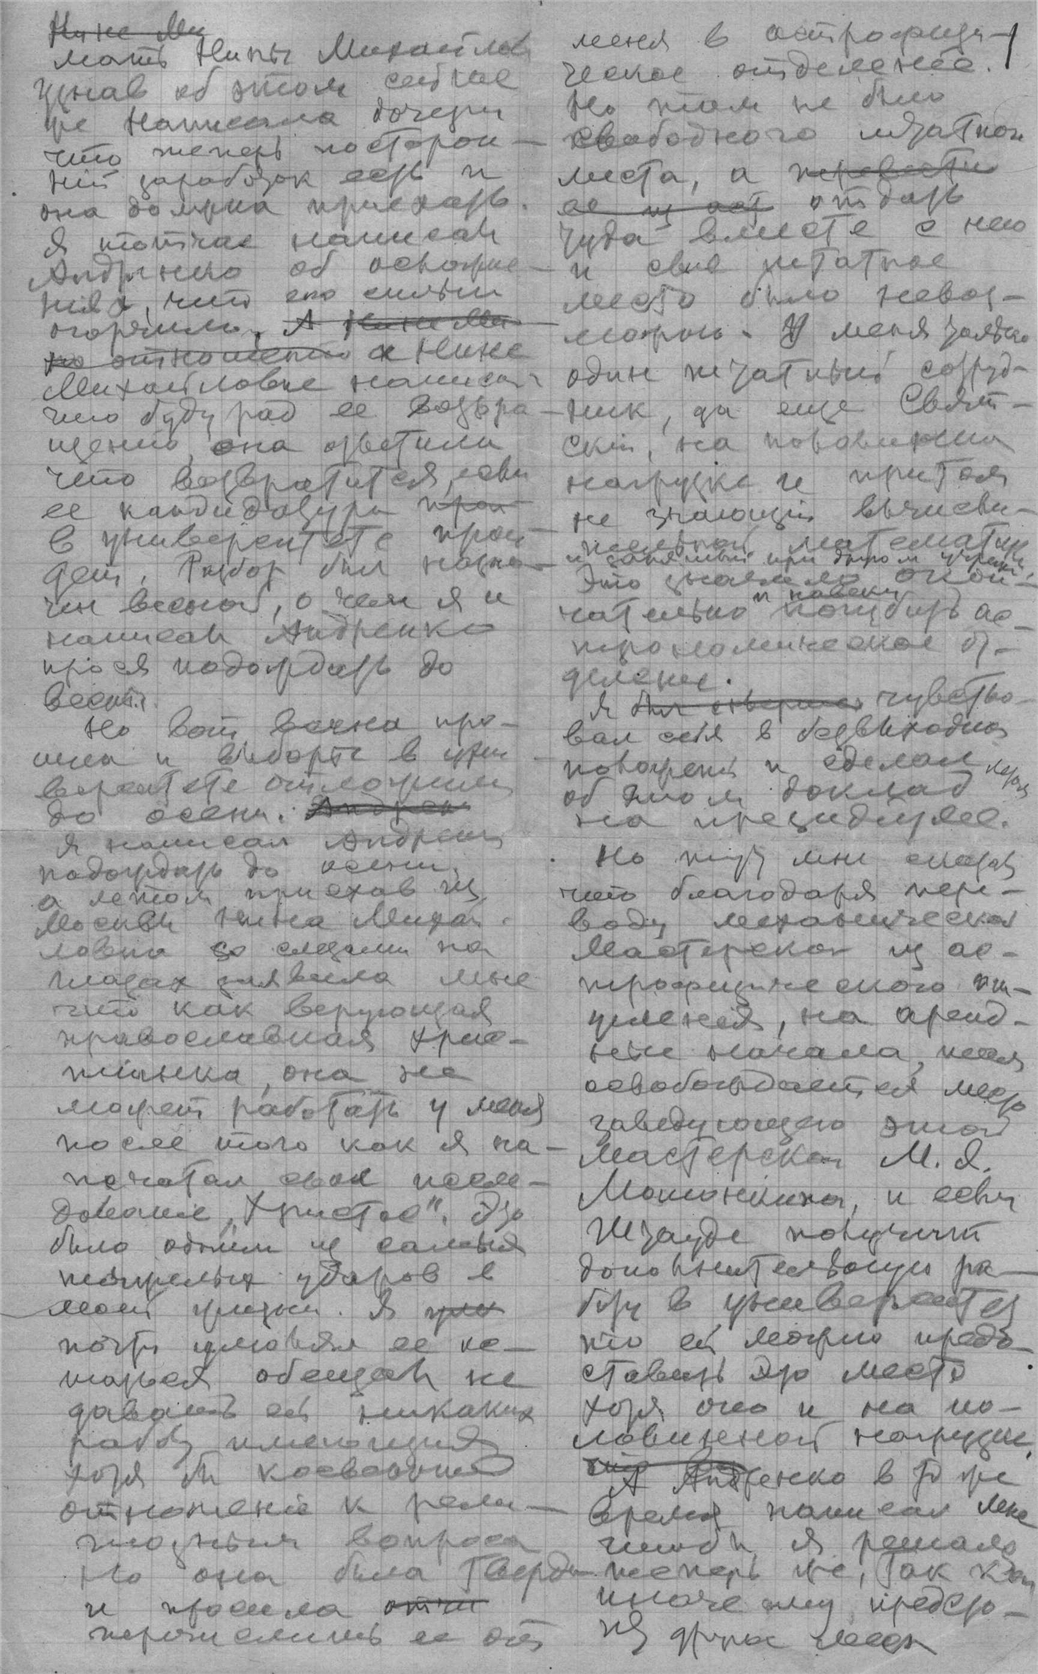 Нине Ми
мать Нины Михайлов
узнав об этом сейчас
же написала дочери
что теперь посторон-
ний заработок есть и
она должна приехать.
Я тотчас написал
Андренко об осложне-
ниях, что его сильно
огорчило. А Нине Ми
по отношению а Нине
Михайловне написал
что буду рад ее возвра-
щению, она ответила
что возвратится, если
ее кандидатура прой
в университете прой-
дет. Выбор был назна-
чен весной, о чем я и
написал Андренко
прося подождать до
весны.
Но вот весна про-
шла и выборы в уни-
верситете отложили
до осени. Андрен
Я написал Андренко
подождать до осени,
а летом приехав из
Москвы Нина Михай-
ловна со слезами на
глазах заявила мне
что как верующая
православная хрис-
тианка, она не
может работать у меня
после того как я на-
печатал свое иссле-
дование „Христос". Это
было одним из самых
тяжелых ударов в
моей жизни. Я ум
почти умолял ее ос-
таться обещал не
давать ей никаких
работ имеющих
хотя бы косвенное
отношение к рели-
гиозным вопросам
Но она была тверда
и просила отчи
перечислить ее от
меня в астрофизи-
ческое отделение.
Но там не было
свободного штатного
места, а перевести
ее отдать
туда вместе с нею
и свое штатное
место было невоз-
можно. У меня
один штатный сотруд-
ник, да еще Свят-
ский, на половинной
нагрузке и притом
не знающий вычисли-
тельной математики
и занятый при другом учрежд.
Это значило окон-
чательно и навеки погубить ас-
трономическое от-
деление.
Я был совершен чувство-
вал себя в безвыходном
положении и сделал
об этом доклад
на президиуме.
Но тут мне сказали
что благодаря пере-
воду механической
мастерской из ас-
трофизического от-
деления, на аренд-
ные начала,
освобождается место
заведующего этой
мастерской М. Я.
и если
Штауде получит
дополнительную ра-
боту в университете
то ей можно предо-
ставить это место
хотя оно и на по-
ловинной нагрузке.
А Андренко в то же
время написал мне
чтобы я решал
теперь же, так как
иначе ему предсто-
ят другие места